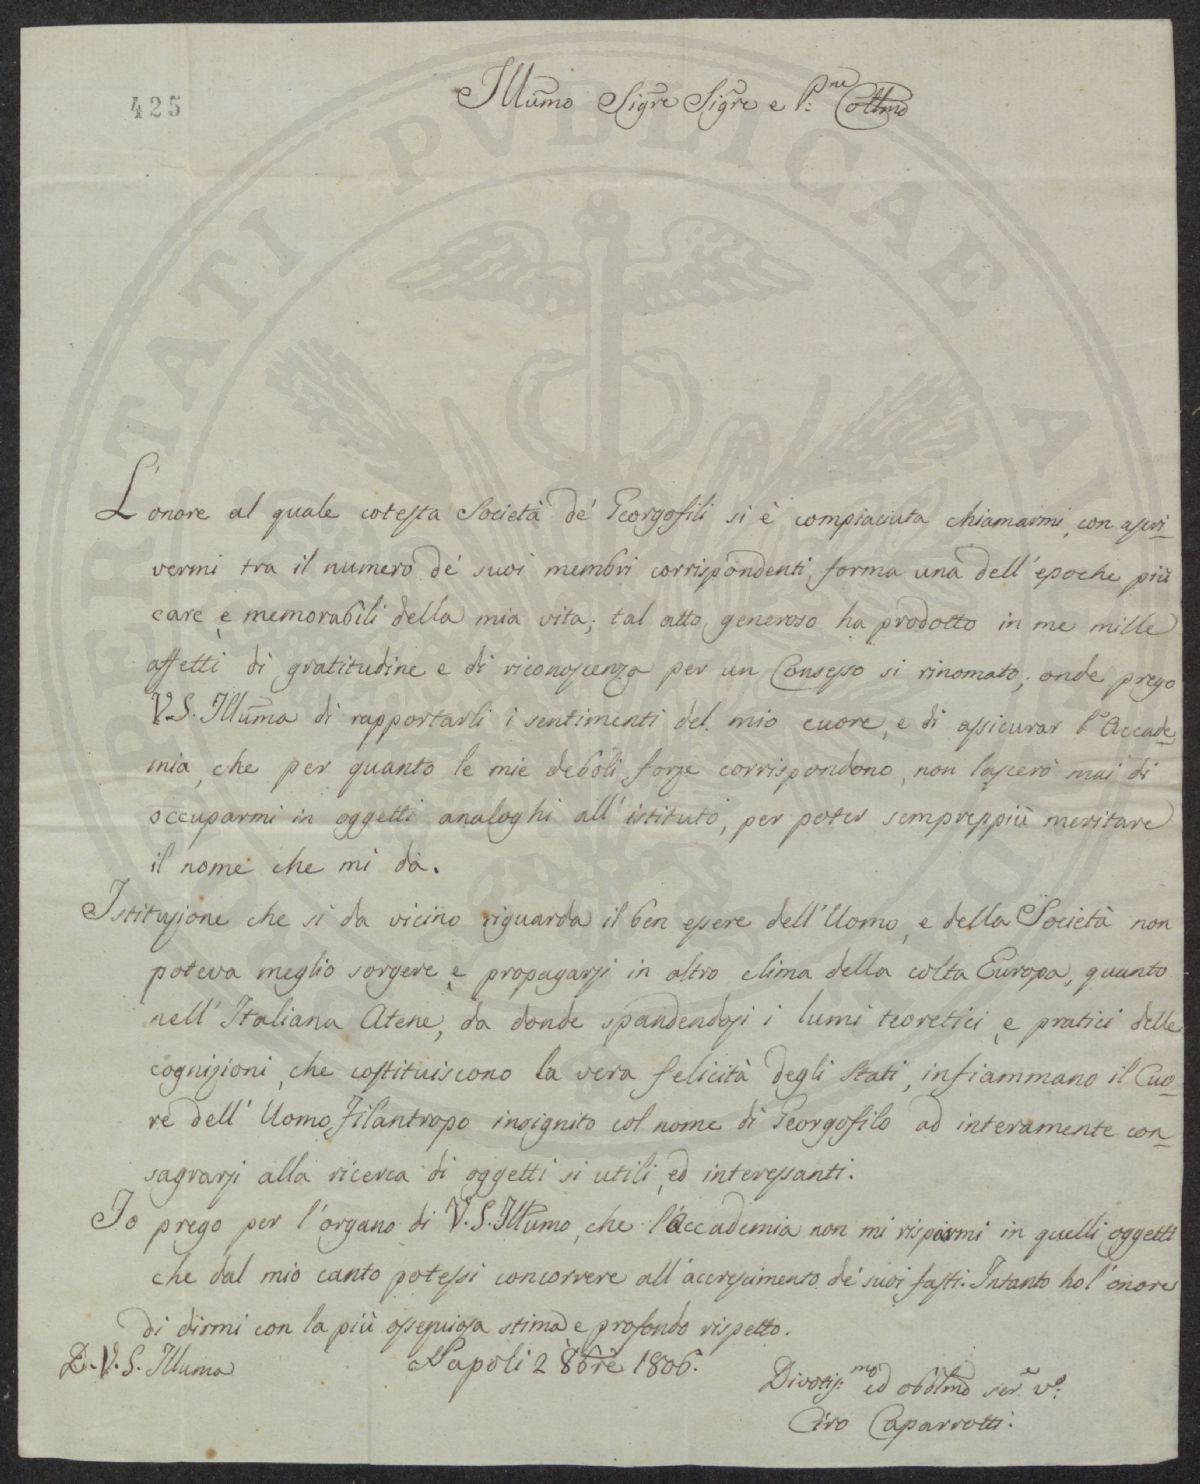 425
Illumo Sigre Sigre e P:ne Collmo
L'onore al quale cotesta Società de' Georgofili si è compiaciuta chiamarmi, con ascri-
vermi tra il numero de' suoi membri corrispondenti, forma una dell'epoche più
care e memorabili della mia vita; tal atto generoso ha prodotto in me mille
affetti di gratitudine e di riconoscenza per un Consesso sì rinomato; onde prego
V.S. Illuma di rapportarli i sentimenti del mio cuore, e di assicurar l'Accade-
mia, che per quanto le mie deboli forze corrispondono, non lascerò mai di
occuparmi in oggetti analoghi all'istituto, per poter sempreppiù meritare
il nome che mi dà.
Istituzione che sì da vicino riguarda il ben essere dell'Uomo, e della Società non
poteva meglio sorgere e propagarsi in altro clima della colta Europa, quanto
nell'Italiana Atene, da donde spandendosi i lumi teoretici e pratici delle
cognizioni, che costituiscono la vera felicità degli Stati, infiammano il Cuo-
re dell'Uomo Filantropo insignito col nome di Georgofilo ad interamente con-
sagrarsi alla ricerca di oggetti sì utili, ed interessanti.
Io prego per l'organo di V.S. Illumo, che l'Accademia non mi risparmi in quelli oggetti
che dal mio canto potessi concorrere all'accrescimento de' suoi fasti. Intanto ho l'onore
di dirmi con la più ossequiosa stima e profondo rispetto.
D. V. S. Illuma
Napoli 2 8bre 1806.
Divotis:mo ed obblmo ser. vo:
Ciro Caparrotti.
PVBLICAE